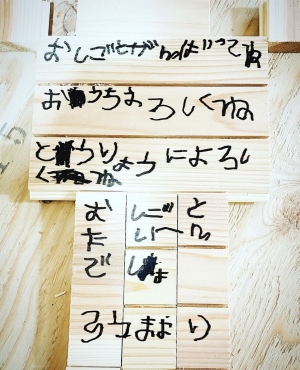 おしごとがんばってね
おうちよろしくね
とうりょうによろし
くね
おしごと
たいへん
でしょ
まおり